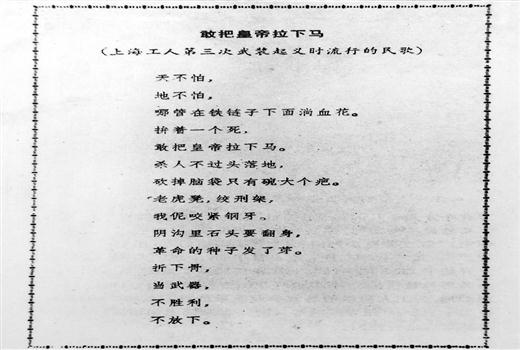 敢把皇帝拉下马
(上海工人第三次武装起义时流行的民歌)
天不怕,
地不怕,
哪管在铁链子下面淌血花。
拚着一个死,
敢把皇帝拉下马。
杀人不过头落地,
砍掉脑袋只有碗大个疤。
老虎凳,绞刑架,
我伲咬紧钢牙。
阴沟里石头要翻身,
革命的种子发了芽。
折下骨,
当武器,
不胜利,
不放下。